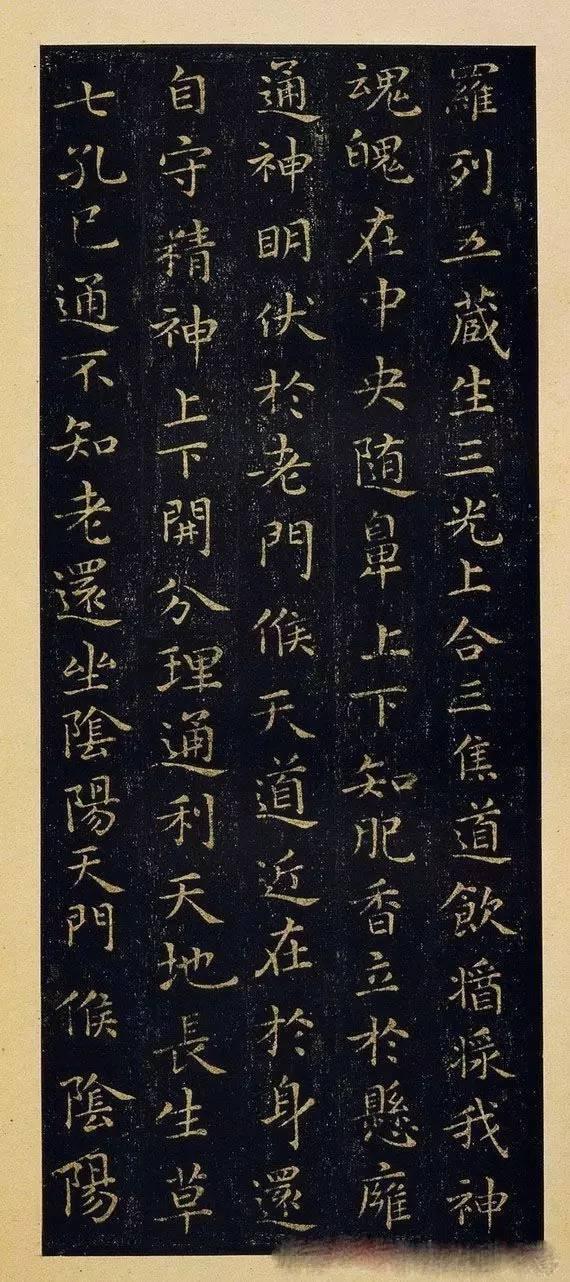 羅列五蔵生三光上合三焦道飲我神
魂魄在中央随鼻上下知肥香立於懸廱
通神明伏於老門候天道近在於身還
自守精神上下開分理通利天地長生草
七孔已通不知老還坐陰陽天門候陰陽